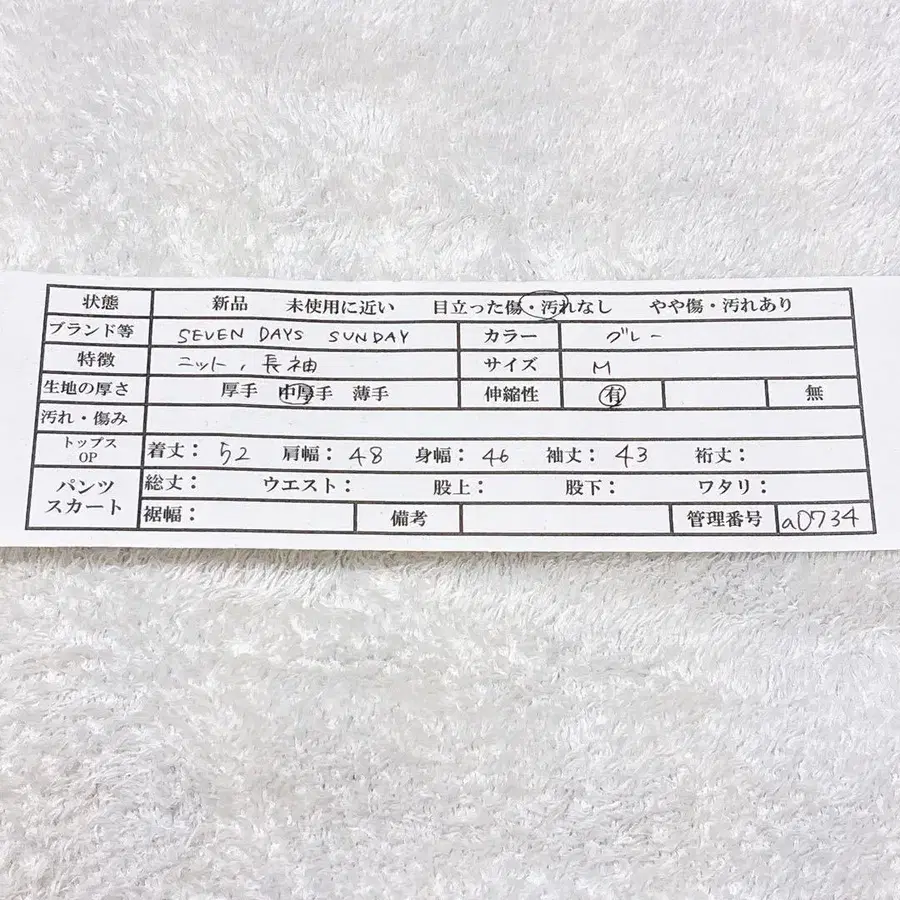 状態 新品 未使用に近い 目立った傷・汚れなし やや傷・汚れあり
ブランド等 SEVEN DAYS SUNDAY カラー グレー
特徴 ニット, 長袖 サイズ M
生地の厚さ 厚手 中厚手 薄手 伸縮性 有 無
汚れ・傷み
トップス OP 着丈: 52 肩幅: 48 身幅: 46 袖丈: 43 裄丈:
パンツ スカート 総丈: ウエスト: 股上: 股下: ワタリ:
裾幅: 備考 管理番号 a0734